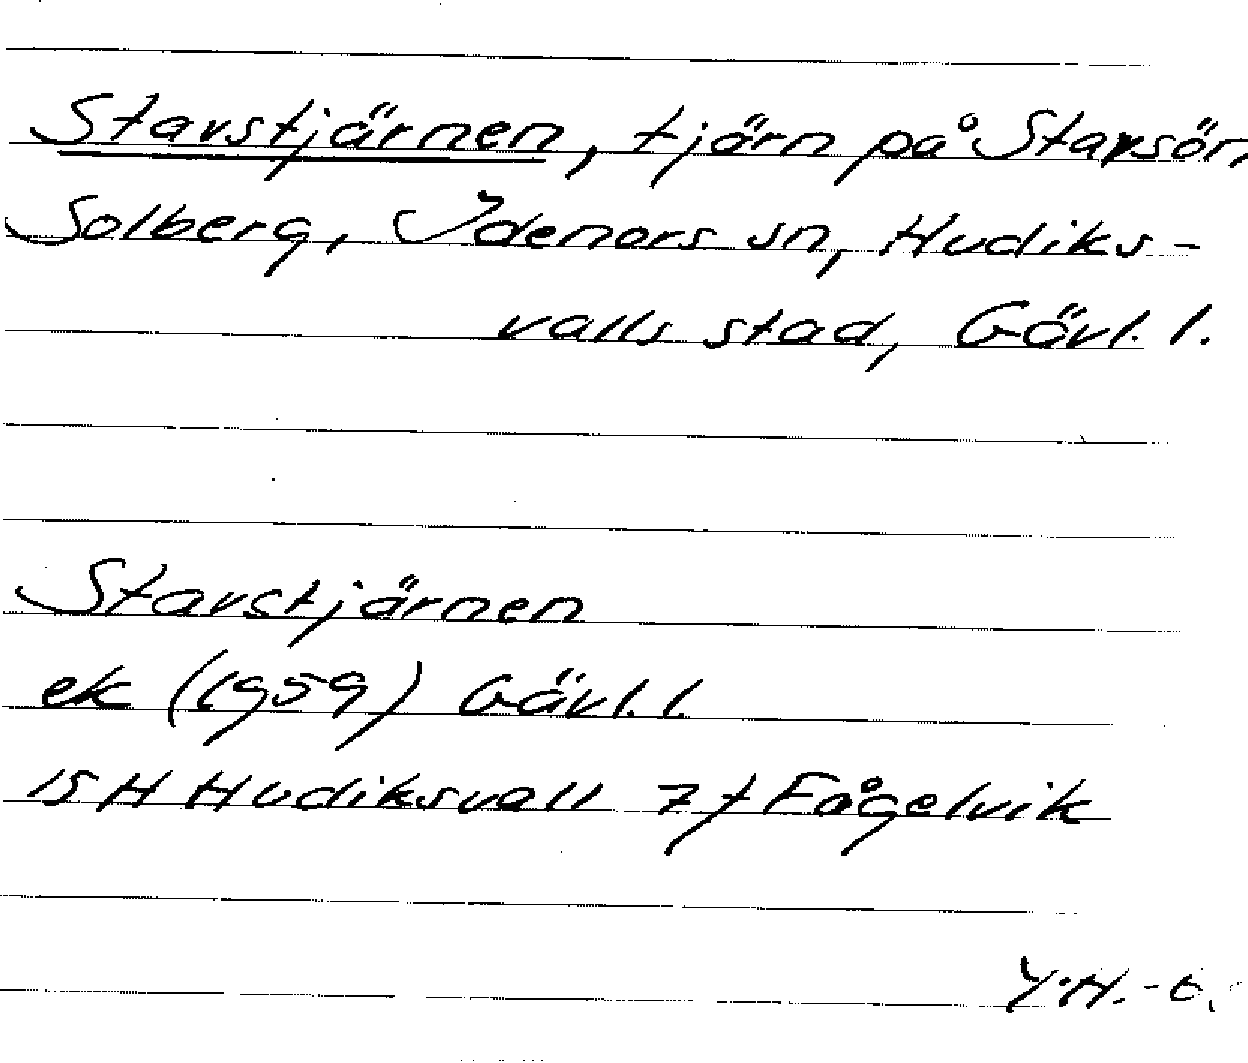 Stavstjärnen, tjärn på Stavsön
Solberg, Idenors sn, Hudiks-
valls stad, Gävl. l.
Stavstjärnen
ek (1959) Gävl. l.
15 H Hudiksvall 7 f Fågelvik
Y.H.-G.